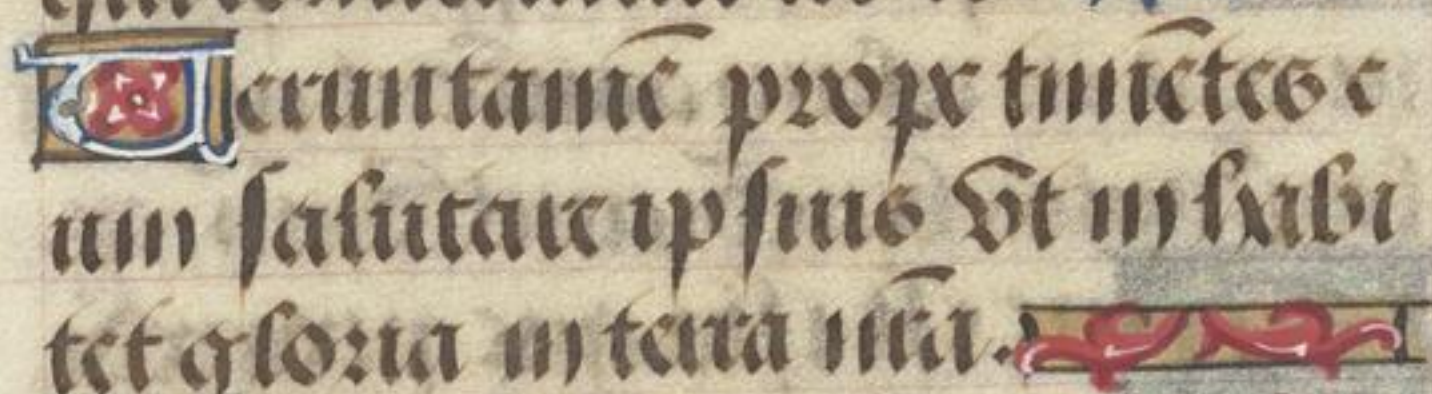 Veruntamē prope timētes e
um salutare ipsius vt inhabi
tet gloria in terra nr̄a.